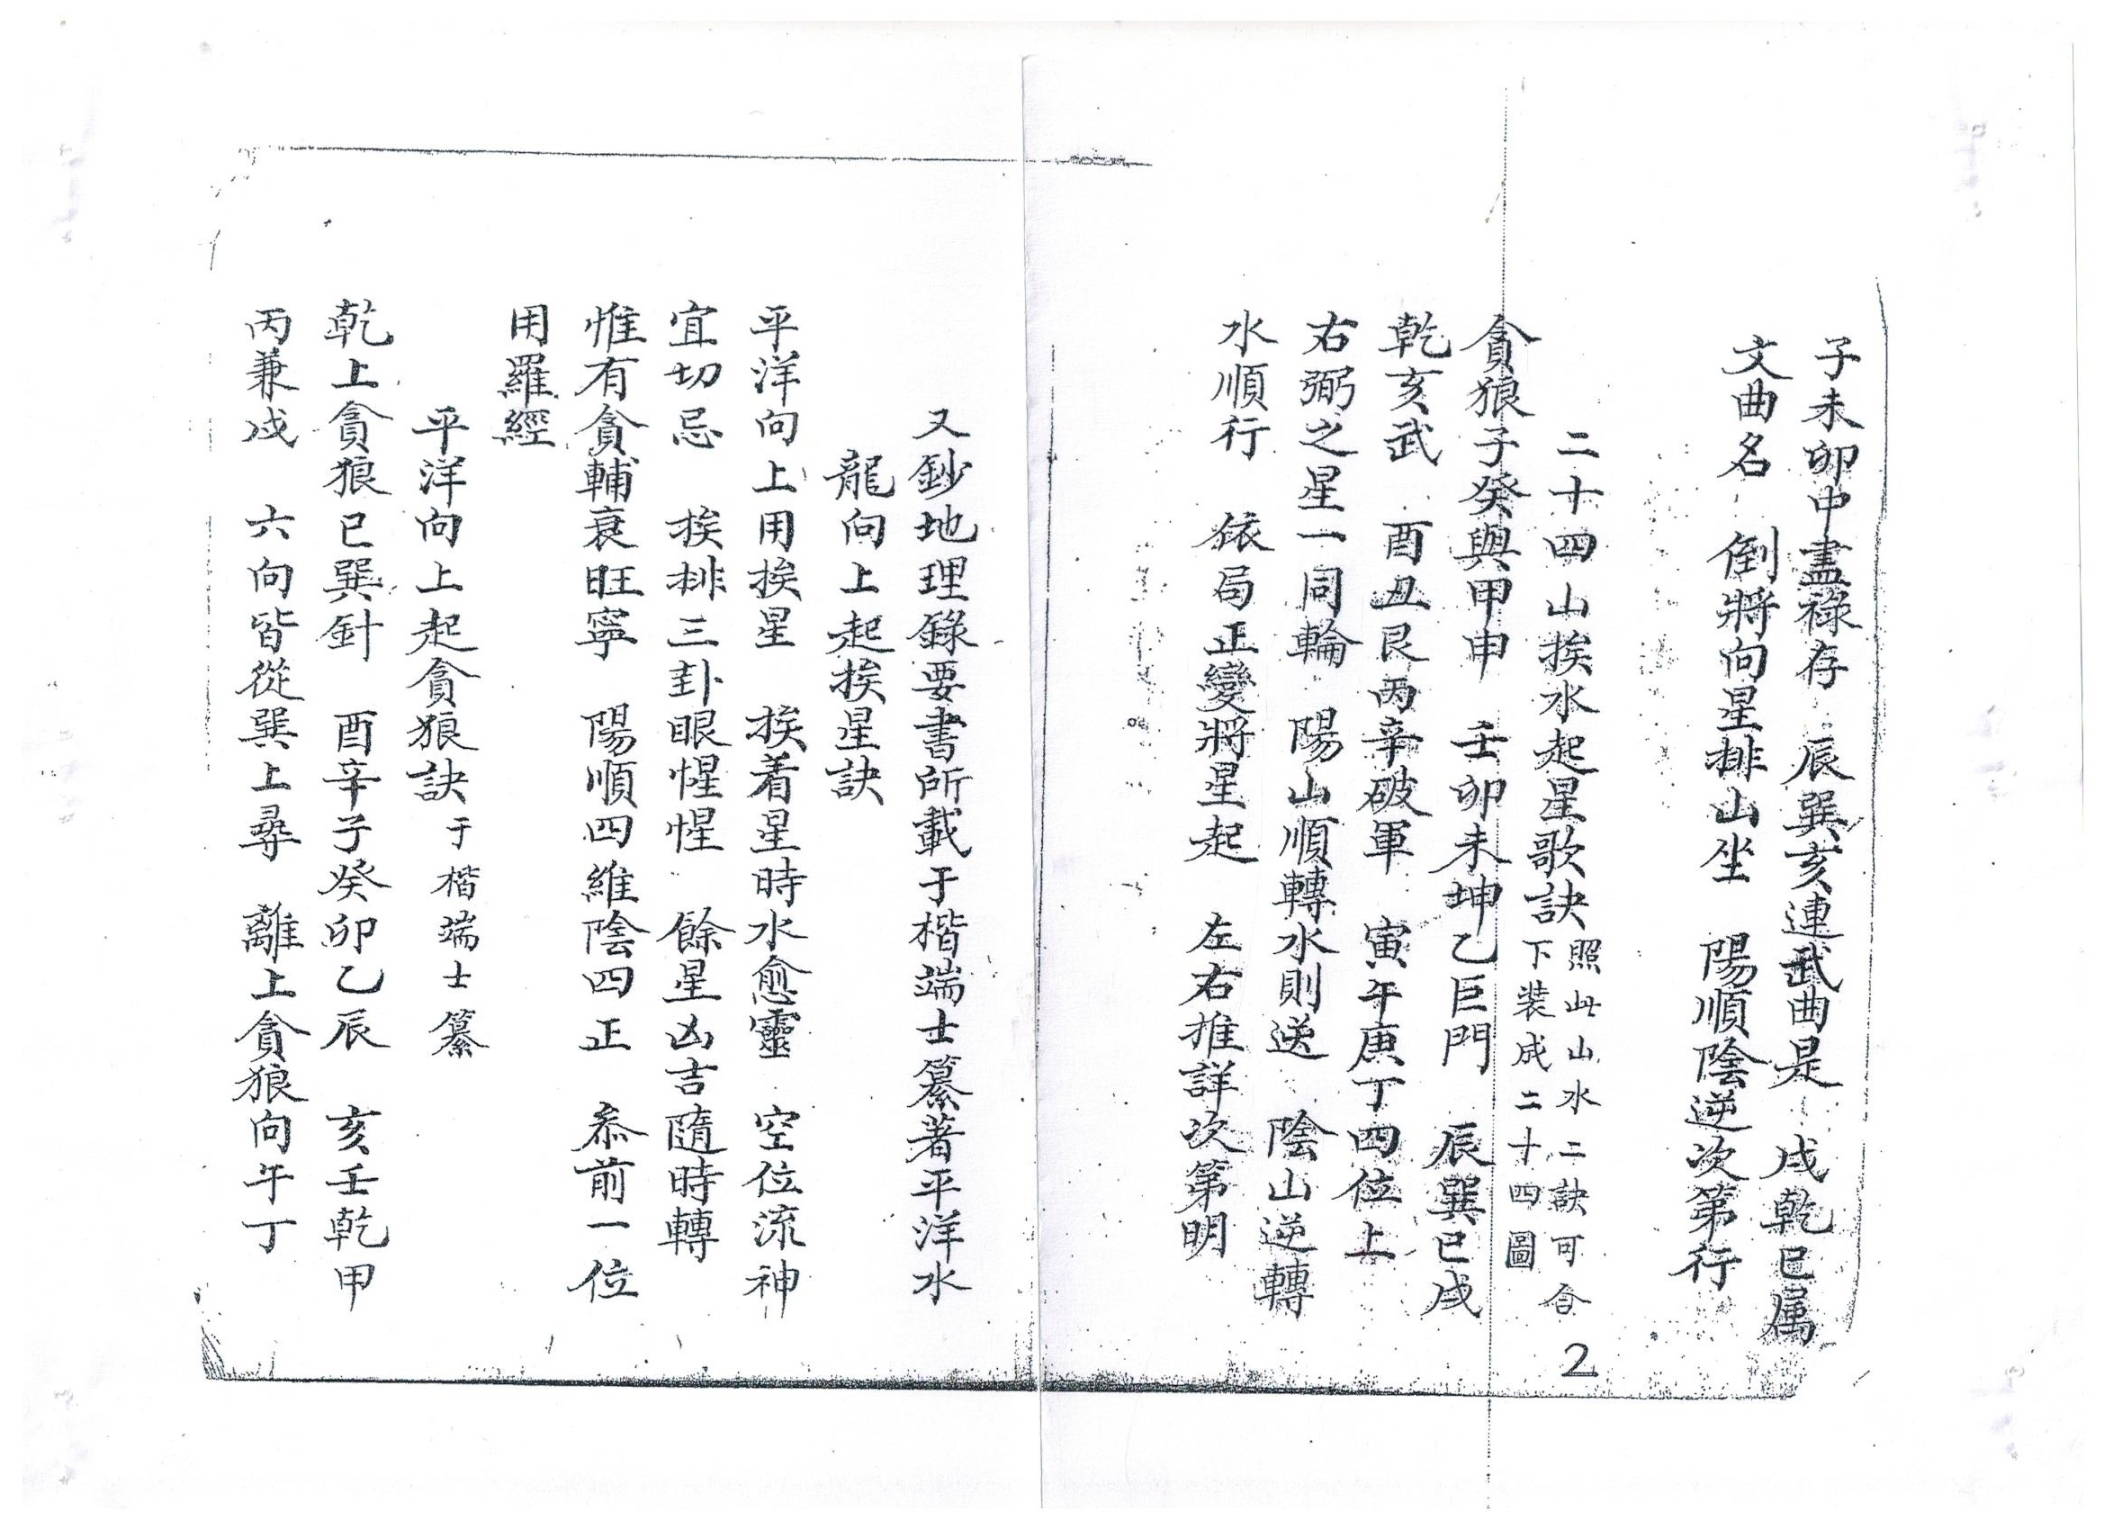 子未卯中盡祿存　辰巽亥連武曲是　戌乾巳属
文曲名　倒將向星排山坐　陽順陰逆次第行
二十四山挨水起星歌訣
照此山水二訣可合
下裝成二十四圖
貪狼子癸與甲申　壬卯未坤乙巨門　辰巽巳戌
乾亥武　酉丑艮丙辛破軍　寅午庚丁四位上
右弼之星一同輪　陽山順轉水則逆　陰山逆轉
水順行　依局正變將星起　左右推詳次第明
2
又鈔地理錄要書所載于楷端士纂著平洋水
龍向上起挨星訣
平洋向上用挨星　挨着星時水愈靈　空位流神
宜切忌　挨排三卦眼惺惺　餘星凶吉隨時轉
惟有貪輔衰旺寧　陽順四維陰四正　叅前一位
用羅經
平洋向上起貪狼訣于楷端士纂
乾上貪狼巳巽針　酉辛子癸卯乙辰　亥壬乾甲
丙兼戌　六向皆從巽上尋　離上貪狼向午丁